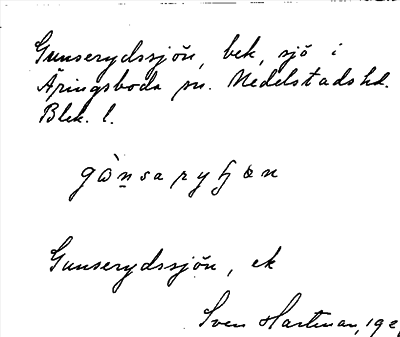 Gunserydssjön, bek, sjö i
Äringsboda sn. Medelstads hd.
Blek. l.
gònsaryʃøn
Gunserydssjön, ek
Sven Hartman, 192